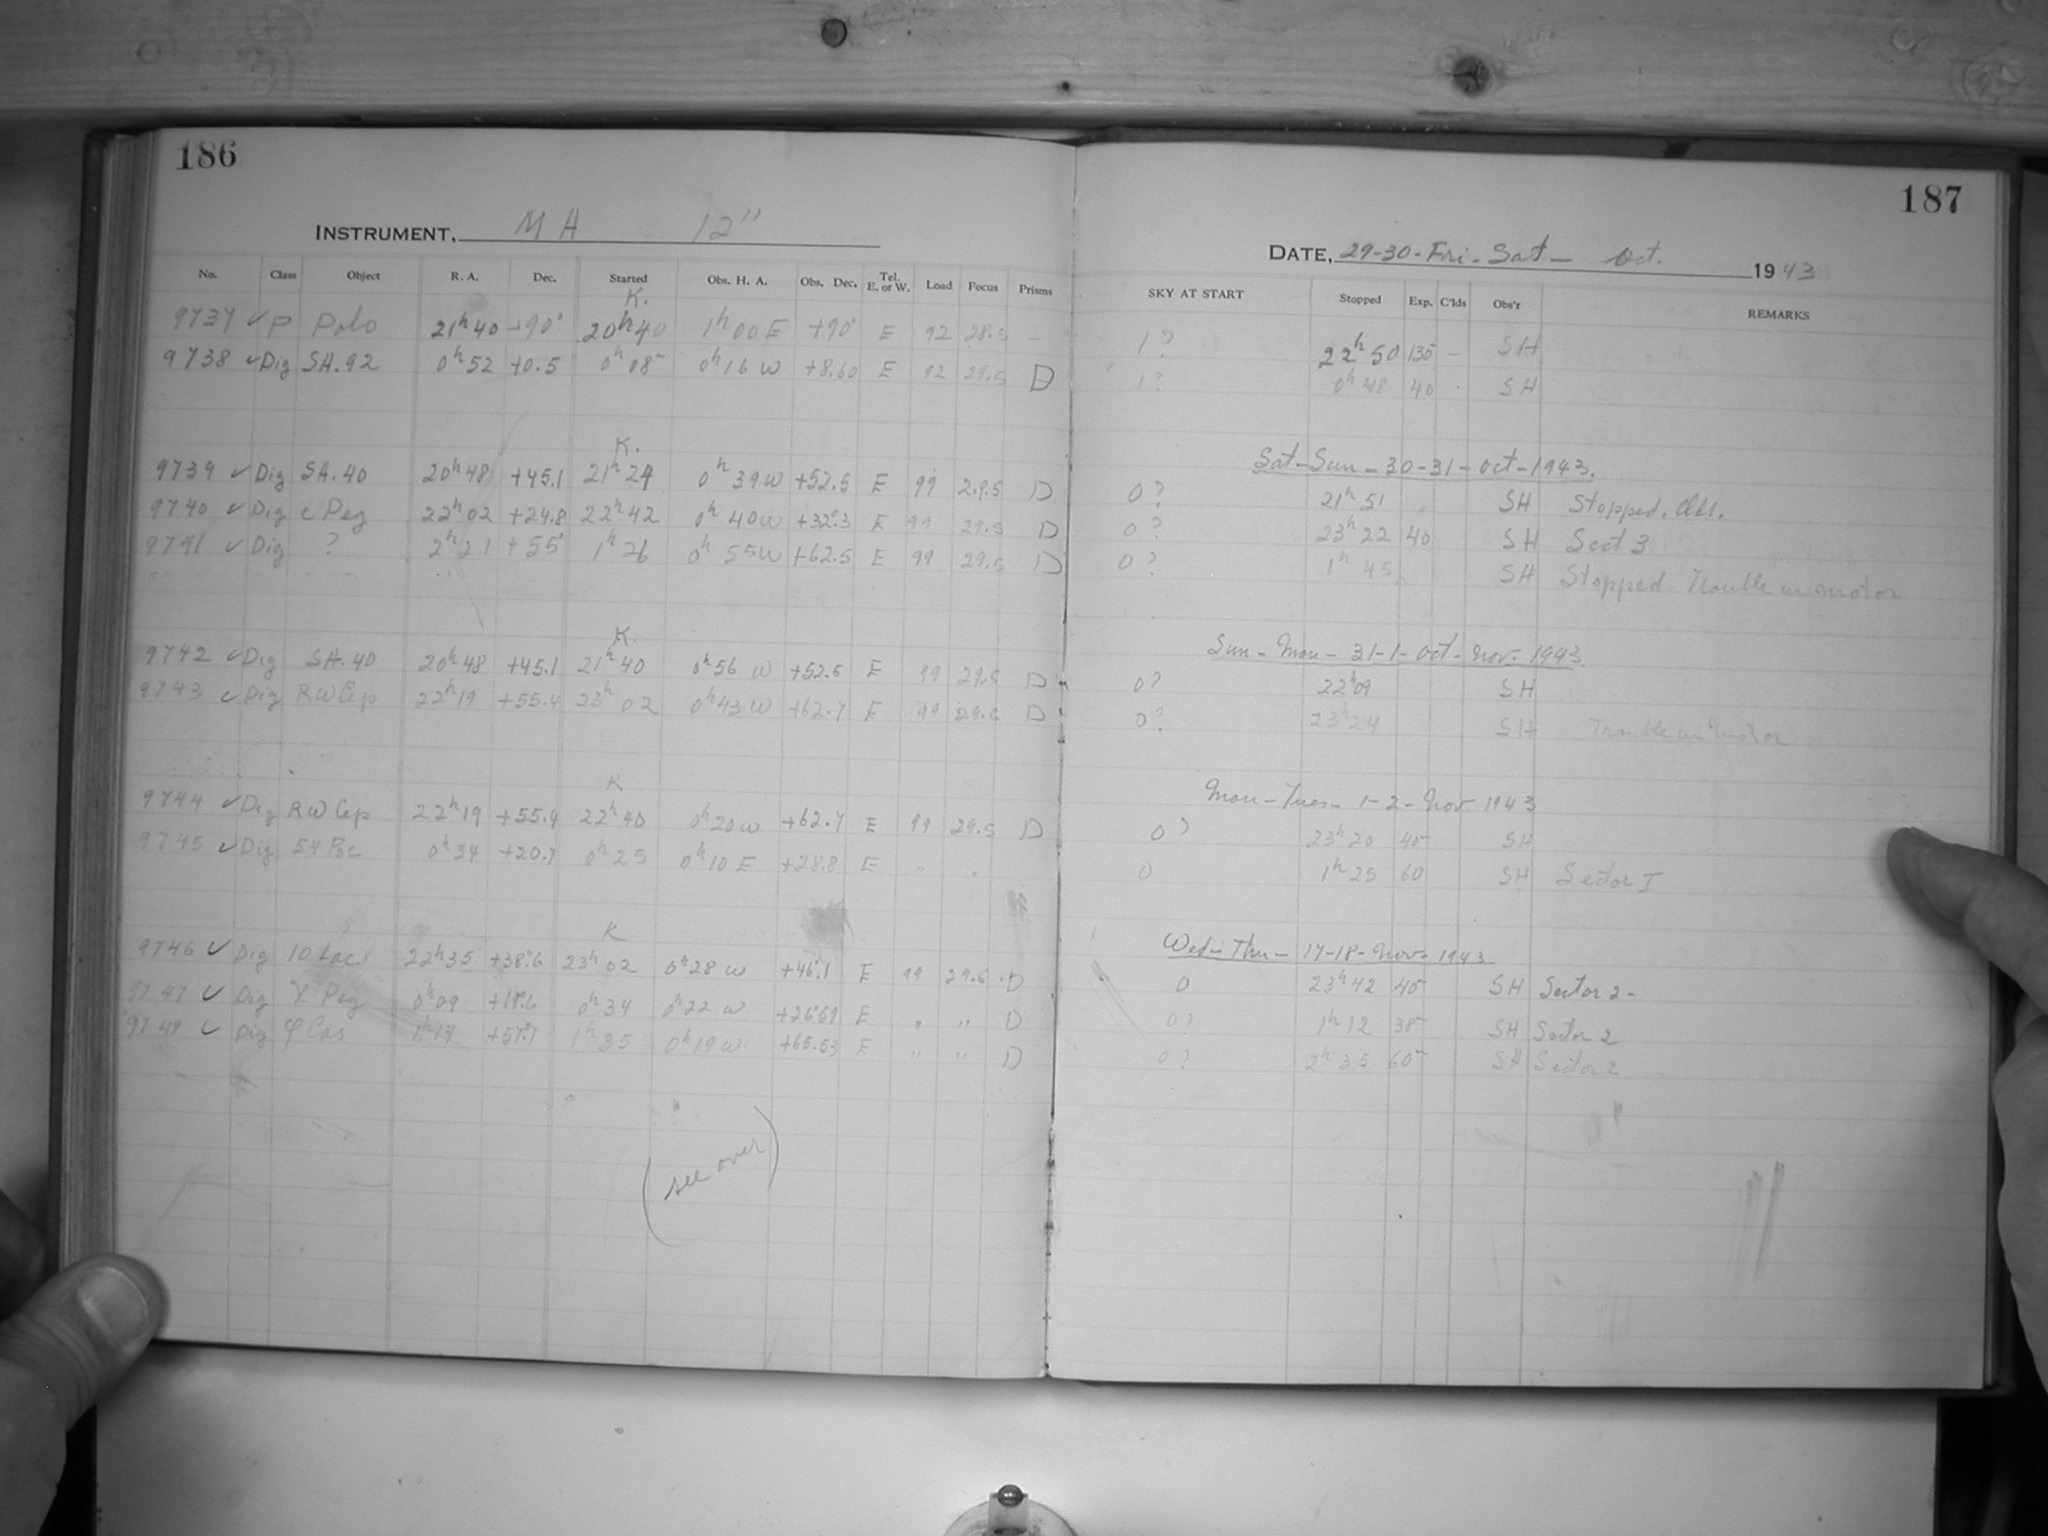 186
INSTRUMENT, MA 12"
No. Class Object R. A. Dec. Started Obs. H. A. Obs. Dec. Tel. E. or W. Load Focus Prisms
K.
9737 ✓ P Polo 21h40 +90° 20h40 1h00E +90° E 92 28.5 —
9738 ✓ Dig SA.92 0h52 +0.5 0h08 0h16W +8.60 E 92 29.5 D
K.
9739 ✓ Dig SA.40 20h48 +45.1 21h24 0h39W +52.5 E 99 29.5 D
9740 ✓ Dig ι Peg 22h02 +24.8 22h42 0h40W +32°.3 E 99 29.5 D
9741 ✓ Dig ? 2h21 +55° 1h26 0h55W +62.5 E 99 29.5 D
K.
9742 ✓ Dig SA.40 20h48 +45.1 21h40 0h56W +52.5 E 99 29.5 D
9743 ✓ Dig RW Cep 22h19 +55.4 23h02 0h43W +62.7 E 99 29.5 D
K
9744 ✓ Dig RW Cep 22h19 +55.4 22h40 0h20W +62.7 E 99 29.5 D
9745 ✓ Dig 54 Psc 0h34 +20.7 0h25 0h10E +28.8 E " "
K
9746 ✓ Dig 10 Lac 22h35 +38°.6 23h02 0h28W +46°.1 E 99 29.5 D
9747 ✓ Dig Peg 0h09 0h34 0h22W +26°59 E " " D
✓ Dig φ Cas +57°.7 1h35 0h19W +65.53 E " " D
(see over)
187
DATE, 29-30-Fri.-Sat— Oct. 1943
SKY AT START Stopped Exp. C'lds Obs'r REMARKS
1? 22h50 130 — SH
1? 0h48 40 SH
Sat—Sun—30-31—Oct—1943.
0? 21h51 SH Stopped. Clds.
0? 23h22 40 SH Sect 3
0? 1h45 SH Stopped Trouble in motor
Sun—Mon—31-1-Oct-Nov. 1943
0? 22h09 SH
0? 23h24 SH Trouble in motor
Mon—Tues—1-2-Nov 1943
0? 23h20 40 SH
0 1h25 60 SH Sector I
Wed—Thu—17-18-Nov—1943
0 23h42 40 SH Sector 2-
0? 1h12 38 SH Sector 2
0? 2h35 60 SH Sector 2